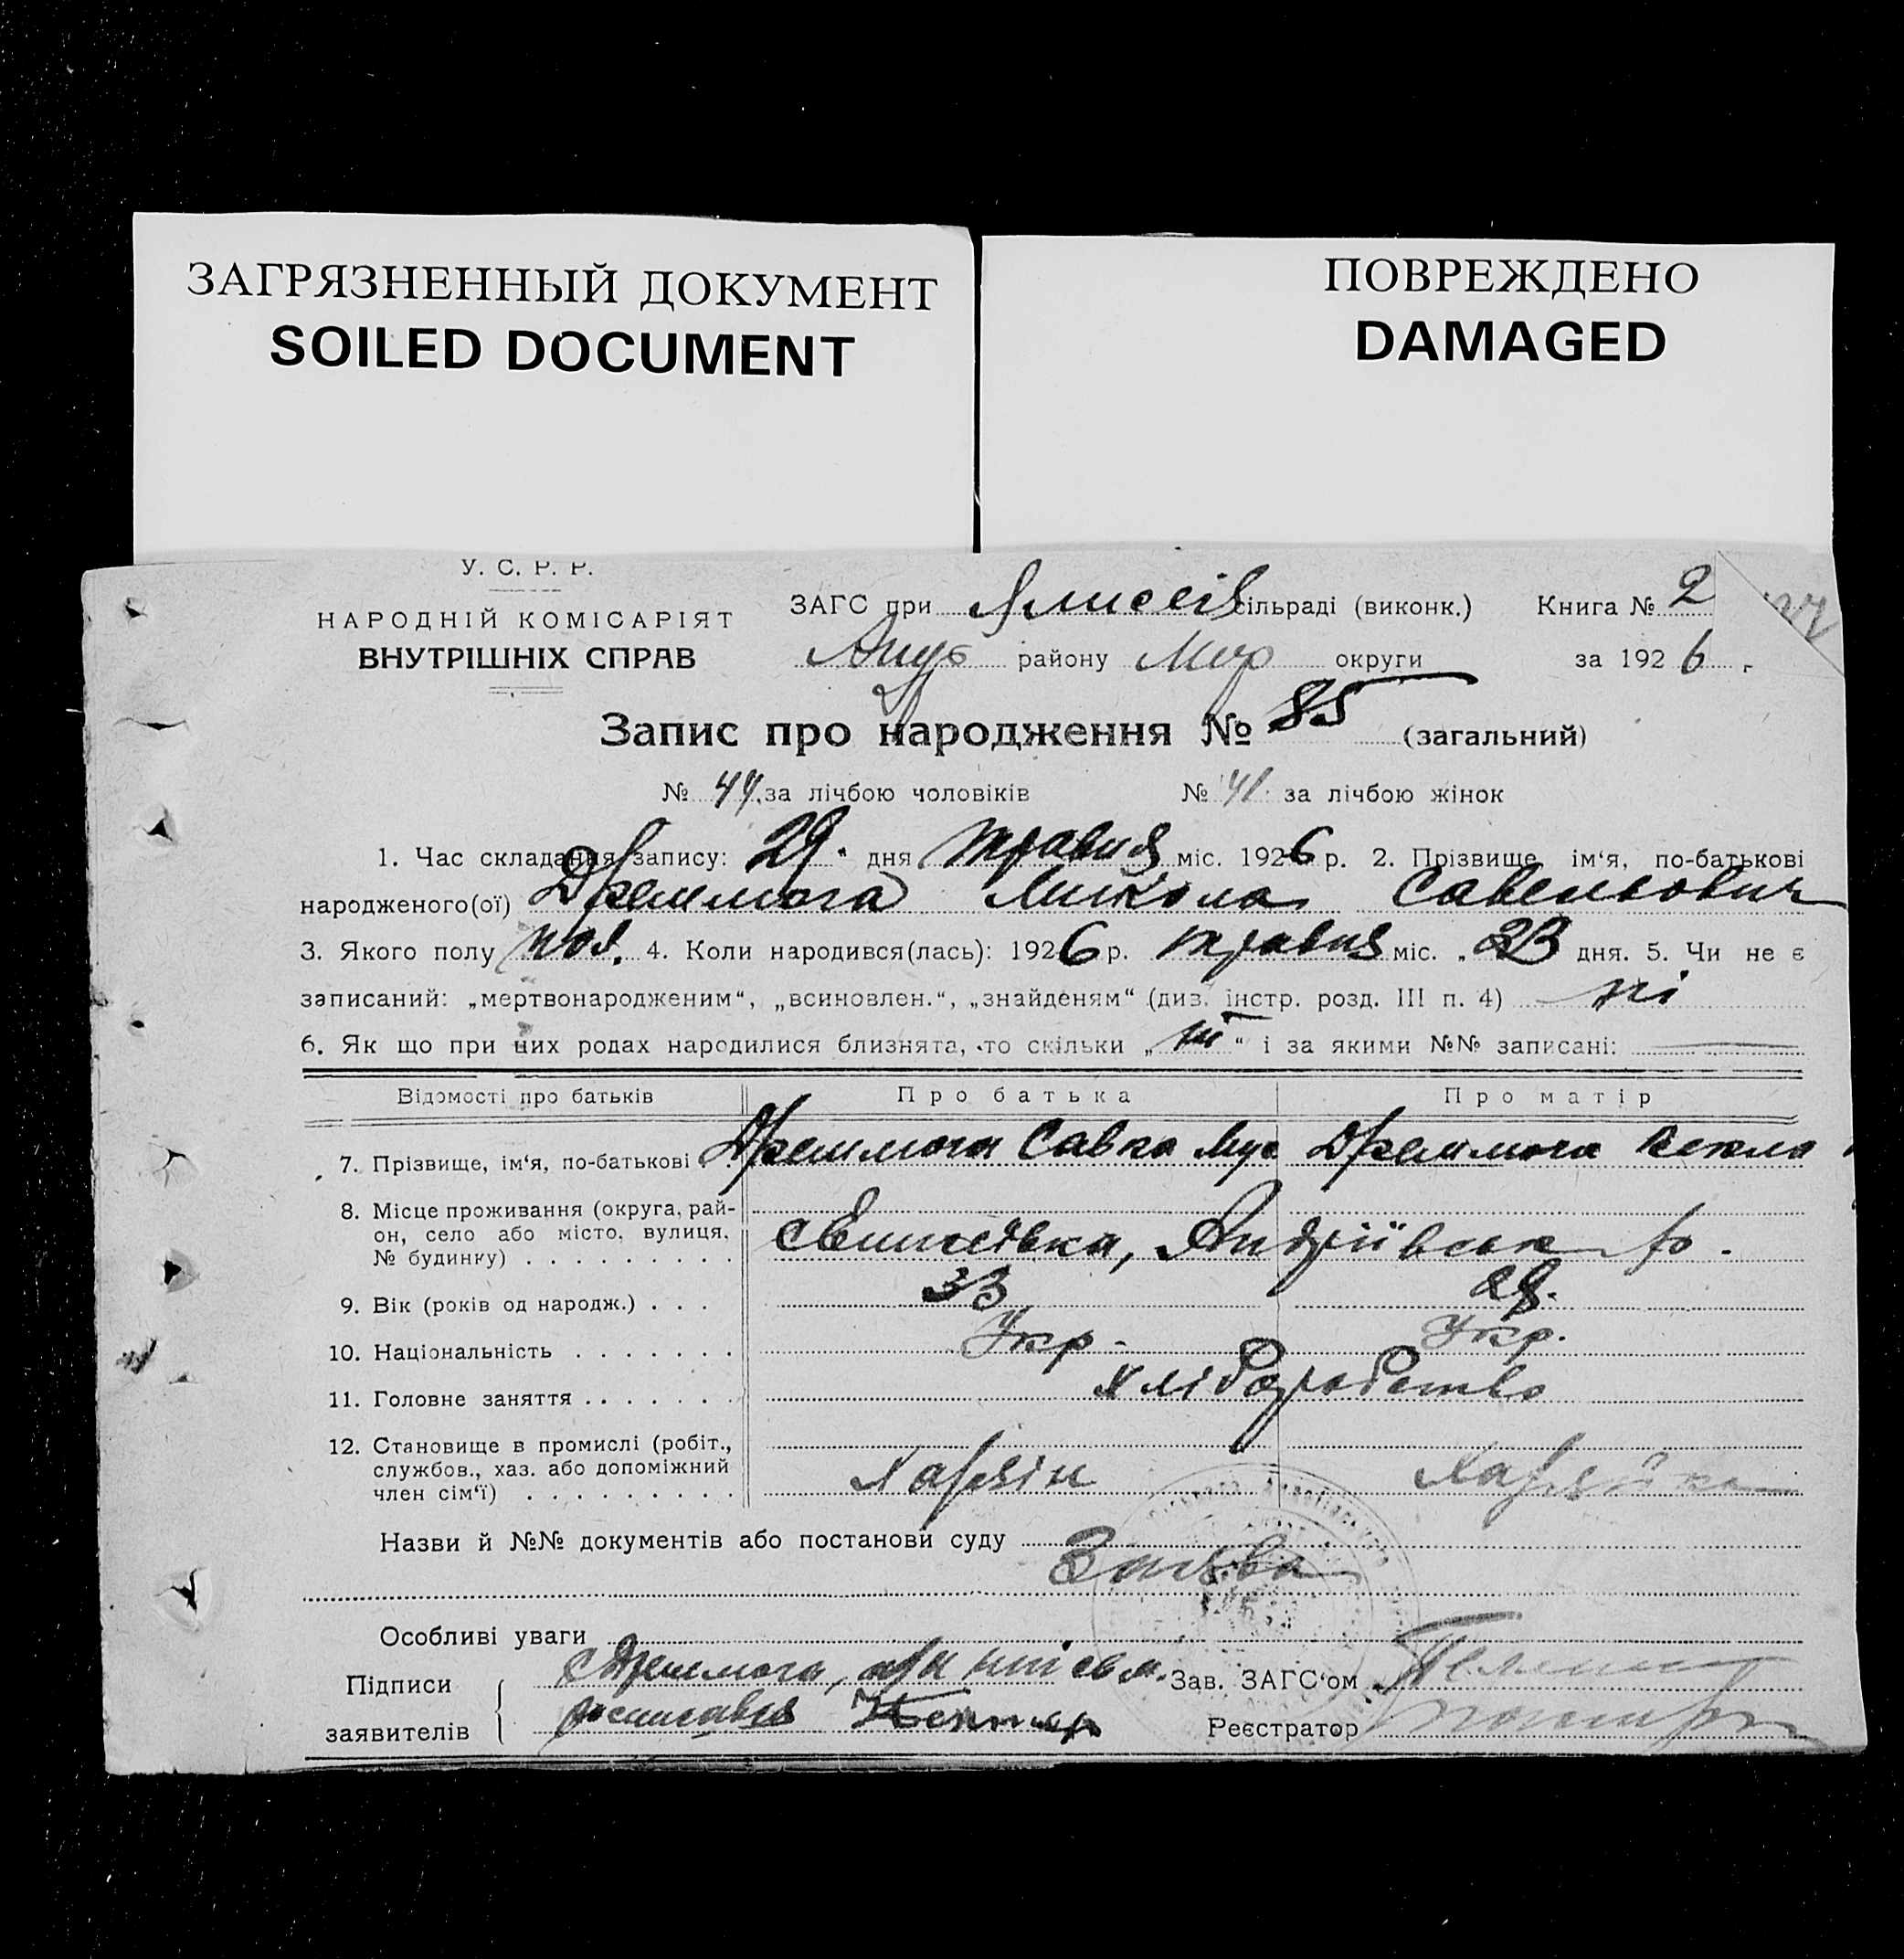 ЗАГРЯЗНЕННЫЙ ДОКУМЕНТ
SOILED DOCUMENT
ПОВРЕЖДЕНО
DAMAGED
У. С. Р. Р.
НАРОДНІЙ КОМІСАРІЯТ
ВНУТРІШНІХ СПРАВ
ЗАГС при сільраді (виконк.) Книга № 2
району округи за 1926 г.
Запис про народження № 85 (загальний)
№ 44 за лічбою чоловіків № 41 за лічбою жінок
1. Час складання запису: 29. дня травня міс. 1926 р. 2. Прізвище ім‘я, по-батькові
народженого(ої) Дремлюга Микола Савельович
3. Якого полу чол. 4. Коли народився(лась): 1926 р. травня міс. „ 23 дня. 5. Чи не є
записаний: „мертвонародженим“, „всиновлен.“, „знайденям“ (див. інстр. розд. III п. 4) ні
6. Як що при цих родах народилися близнята, то скільки „ “ і за якими №№ записані:
Відомості про батьків Про батька Про матір
7. Прізвище, ім‘я, по-батькові Дремлюга Савка Мус Дремлюга Векла
8. Місце проживання (округа, рай-
он, село або місто, вулиця,
№ будинку) с Єлисеївка, Андріївськ р.
9. Вік (років од народж.) 33 28.
10. Національність Укр. Укр.
11. Головне заняття Хліборобство
12. Становище в промислі (робіт.,
службов., хаз. або допоміжний
член сім‘ї) Хазяін Хазяйка
Назви й №№ документів або постанови суду
Заява
Особливі уваги
Підписи Дремлюга, Зав. ЗАГС‘ом
заявителів росписався Реєстратор